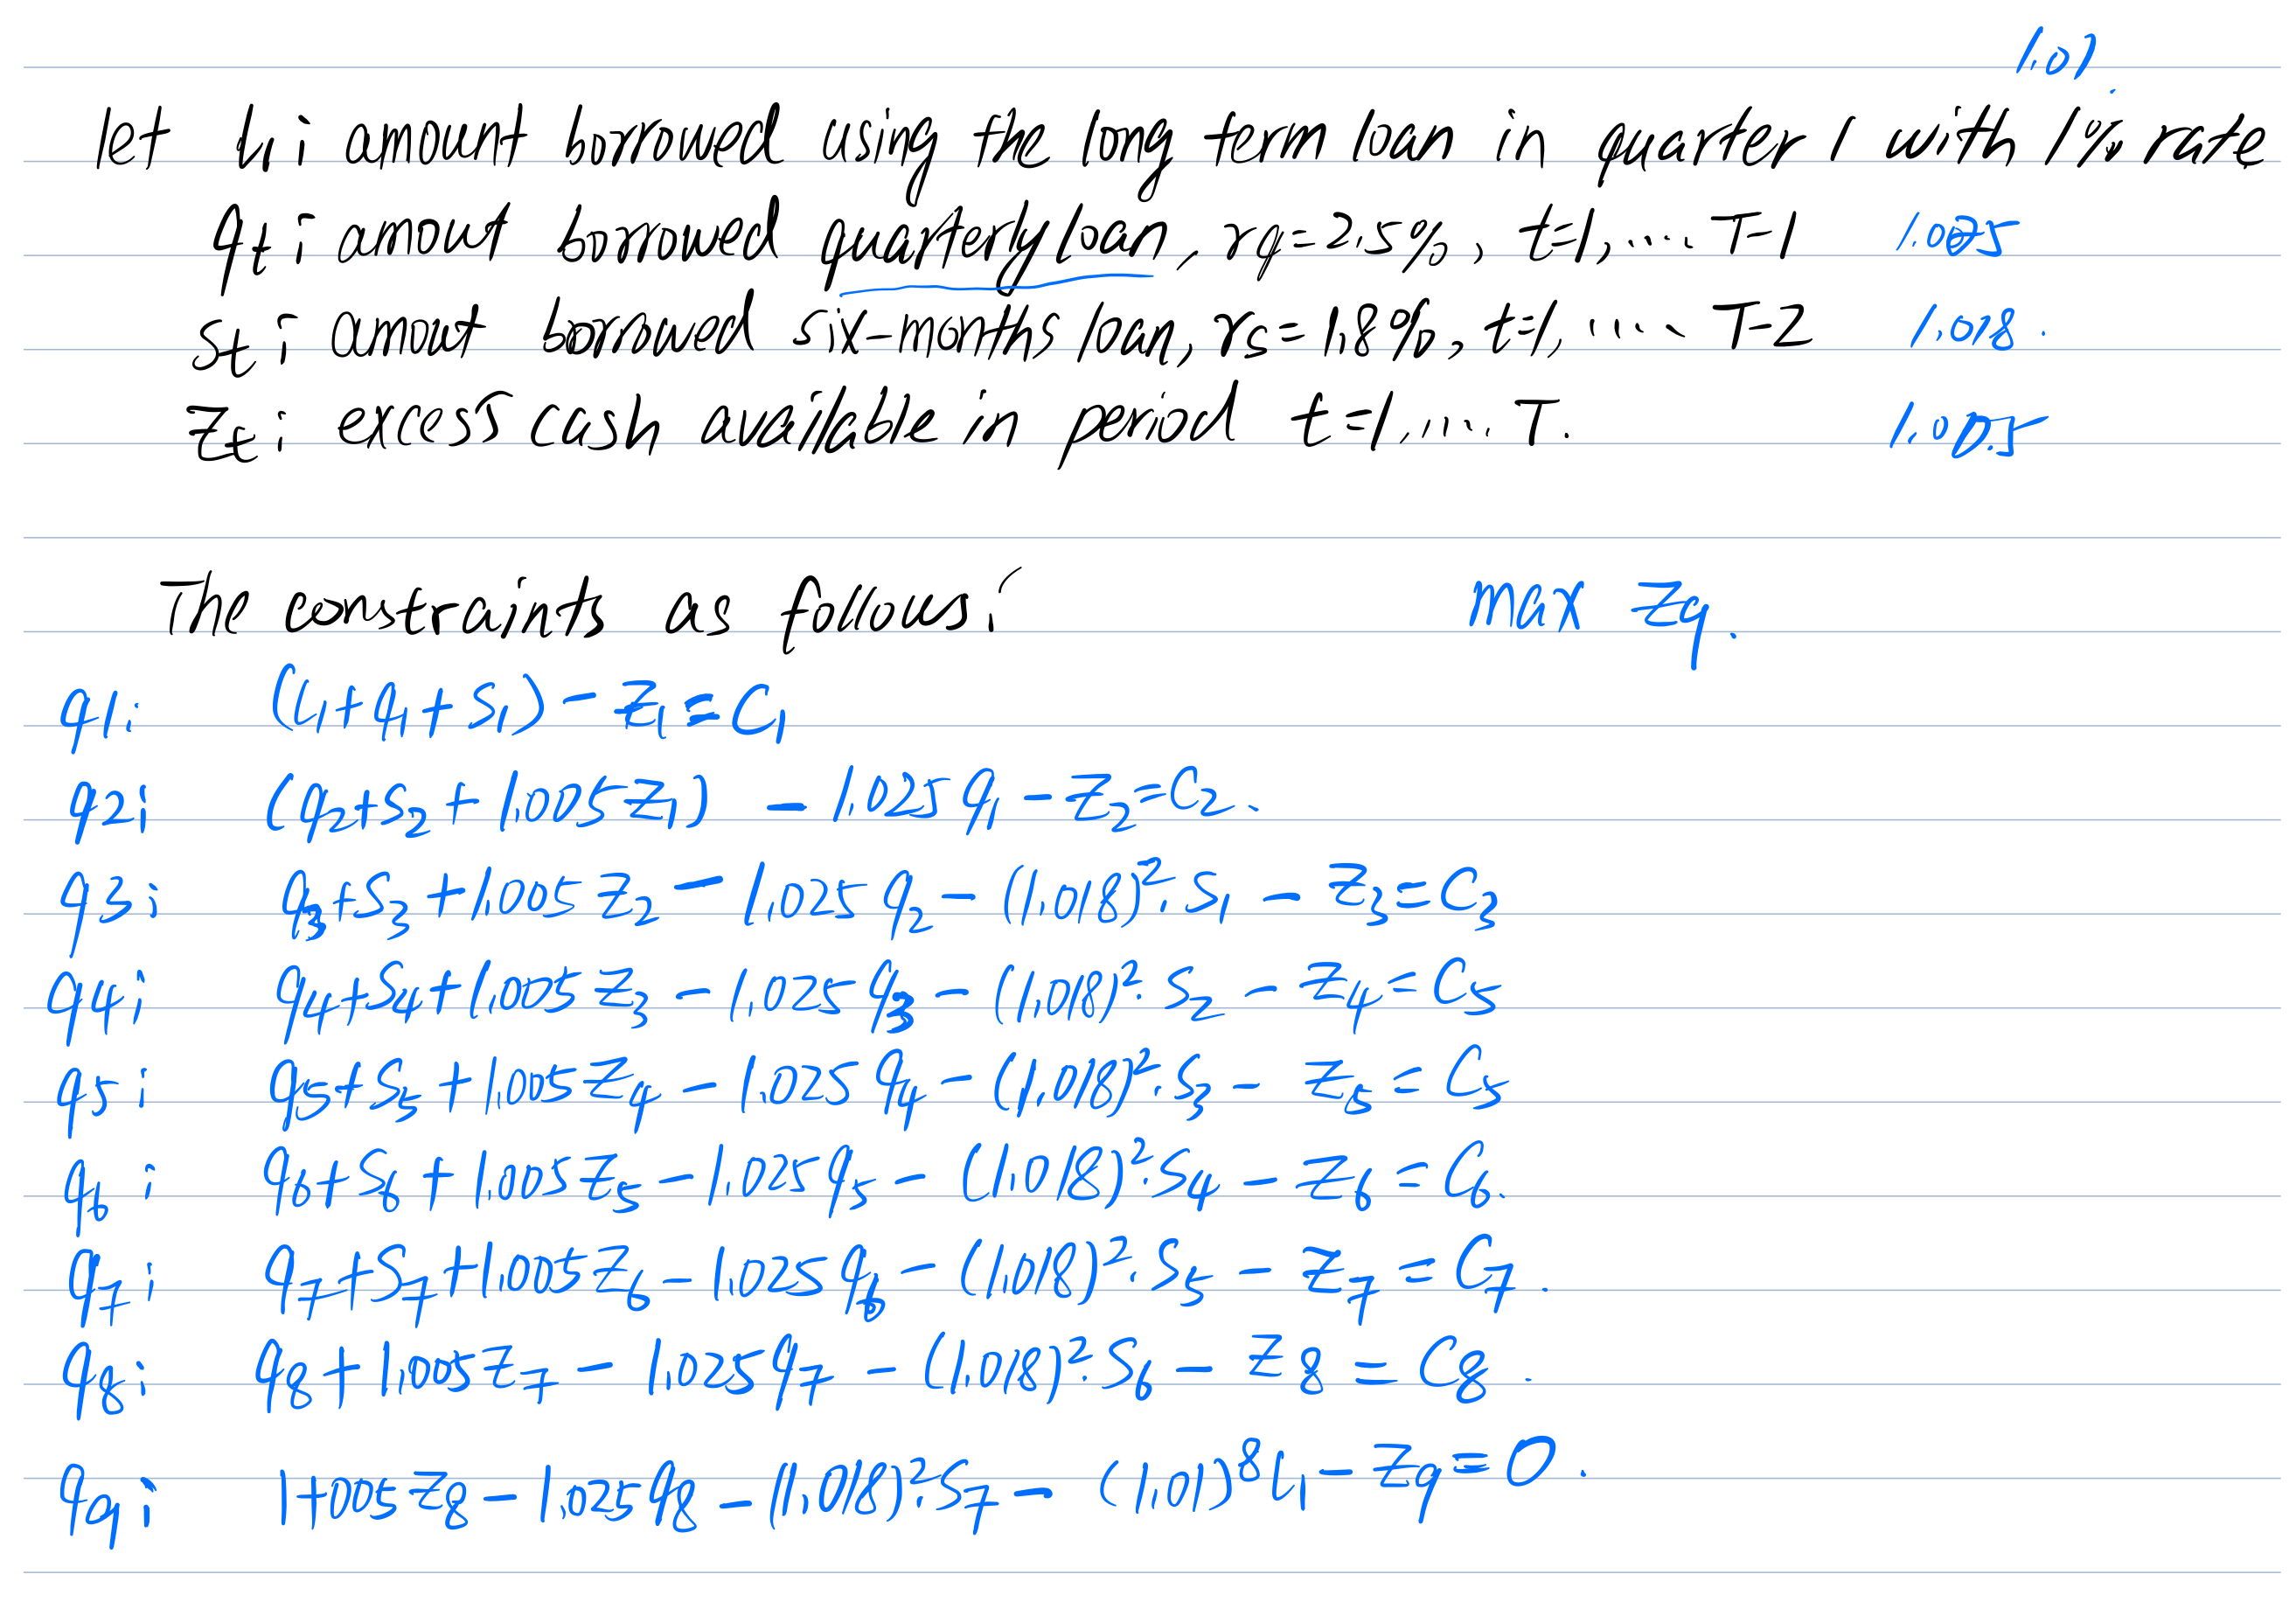 1.01.
let l₁: amount borrowed using the long term loan in quarter 1 with 1% rate
qt: amout borrowed quarterly loan, rq=2.5%, t=1,.... T-1 1.025
St: amout borrowed six-months loan, rs=1.8%, t=1, .... T-2 1.018.
Zt: excess cash available in period t=1..... T. 1.005
The contraints as follows: max Z9.
q1: (l₁+q₁+S₁)-Z₁=C₁
q2: (q₂+S₂+1.005Z₁) - 1.025q₁-Z₂=C₂.
q3: q₃+S₃+1.005Z₂-1.025q₂-(1.018)²·S₁-Z₃=C₃
q4: q₄+S₄+1.005Z₃-1.025q₃-(1.018)²·S₂-Z₄=C₅
q5: q₅+S₅+1.005Z₄-1.025q₄-(1.018)²·S₃-Z₅=C₅
q6: q₆+S₆+1.005Z₅-1.025q₅-(1.018)²·S₄-Z₆=C₆.
q7: q₇+S₇+1.005Z₆-1.025q₆-(1.018)²·S₅-Z₇=C₇.
q8: q₈+1.005Z₇-1.025q₇-(1.018)²·S₆-Z₈=C₈.
q9: 1+005Z₈-1.025q₈-(1.018)²·S₇-(1.01)⁸l₁-Z₉=0.